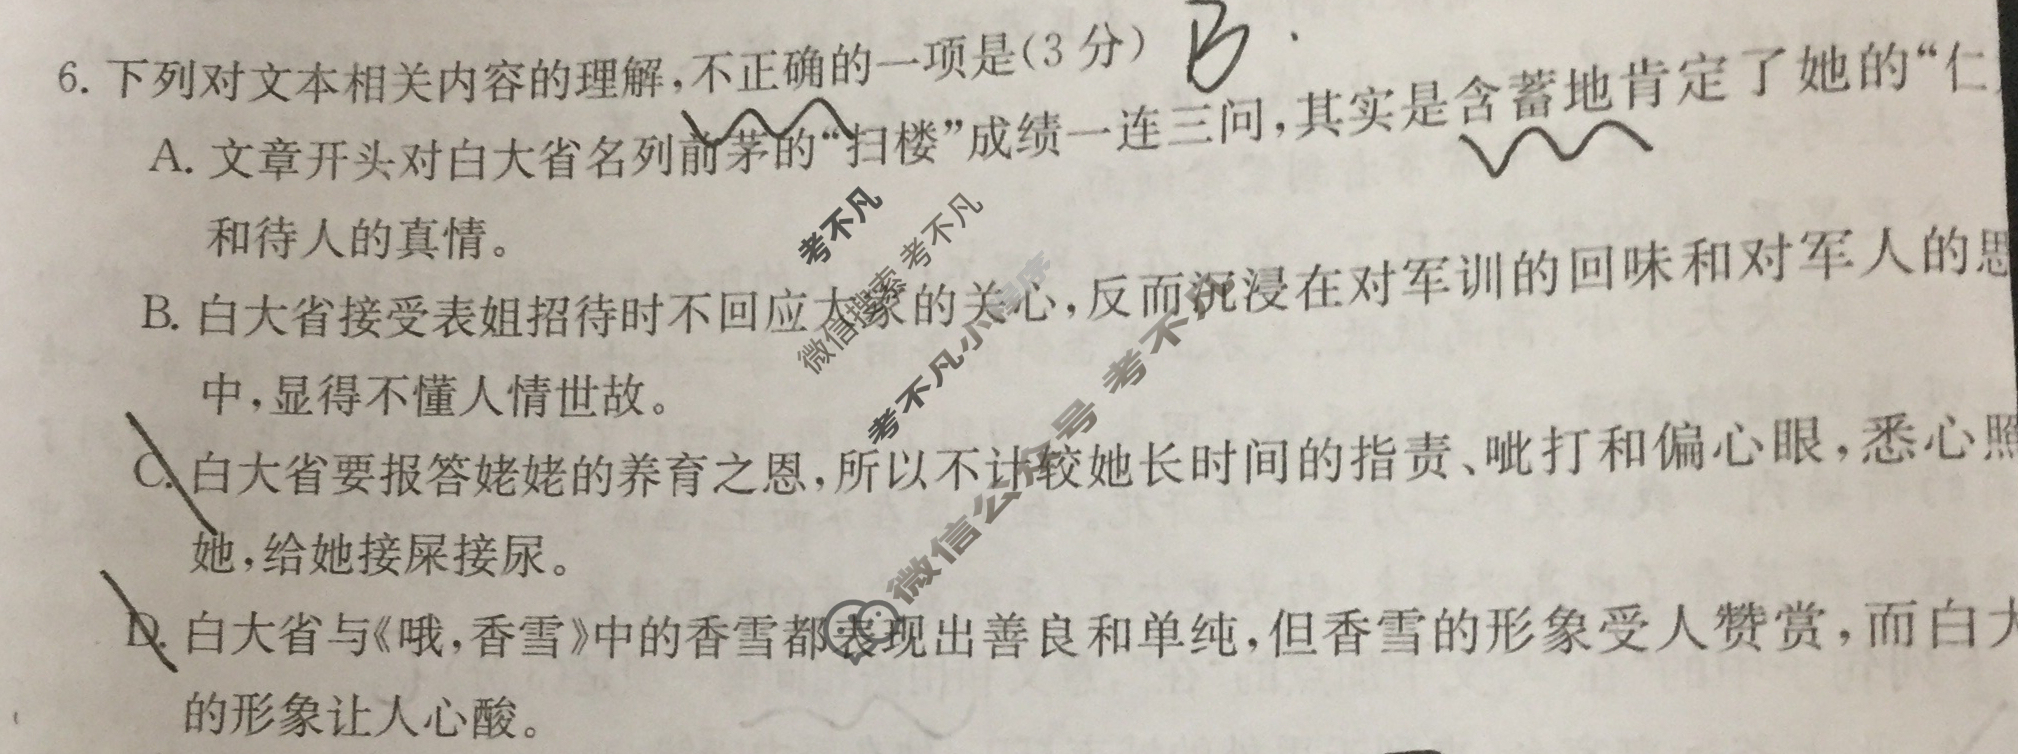 6. 下列对文本相关内容的理解,不正确的一项是(3分) B
A. 文章开头对白大省名列前茅的“扫楼”成绩一连三问,其实是含蓄地肯定了她的“仁
和待人的真情。
B. 白大省接受表姐招待时不回应大家的关心,反而沉浸在对军训的回味和对军人的思
中,显得不懂人情世故。
C. 白大省要报答姥姥的养育之恩,所以不计较她长时间的指责、呲打和偏心眼,悉心照
她,给她接屎接尿。
D. 白大省与《哦,香雪》中的香雪都表现出善良和单纯,但香雪的形象受人赞赏,而白大
的形象让人心酸。
考不凡
微信搜索 考不凡
考不凡小程序
微信公众号 考不凡